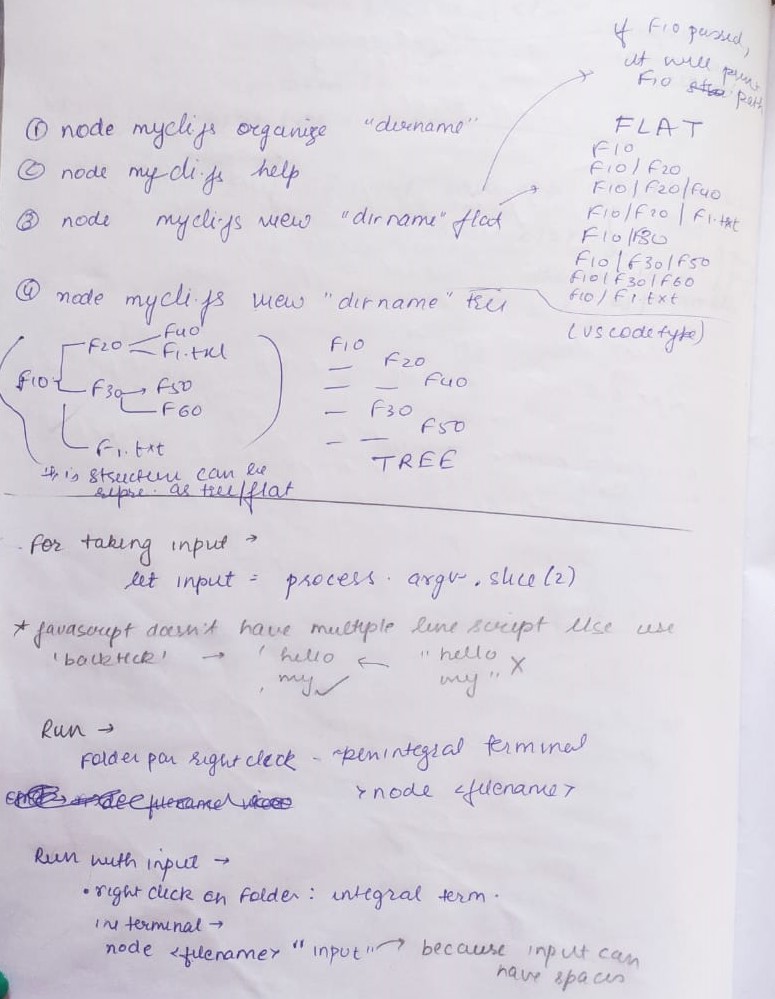 if F10 passed,
it will print
F10 path
① node mycli.js organize "dirname"
② node mycli.js help
③ node mycli.js view "dirname" flat
④ node mycli.js view "dirname" tree
FLAT
F10
F10/F20
F10/F20/F40
F10/F20/F1.txt
F10/F30
F10/F30/F50
F10/F30/F60
F10/F1.txt
(vscode type)
F10
F20
F40
F1.txt
F30 → F50
F60
F1.txt
this structure can be
repre. as tree/flat
F10
— F20
— — F40
— F30
— — F50
TREE
For taking input →
let input = process.argv.slice(2)
* javascript doesn't have multiple line script else use
'backtick' → ` hello ← " hello
` my ✓ my " X
Run →
Folder par right click - open integral terminal
> node <filename>
Run with input →
• right click on folder : integral term.
in terminal →
node <filename> "input" → because input can
have spaces